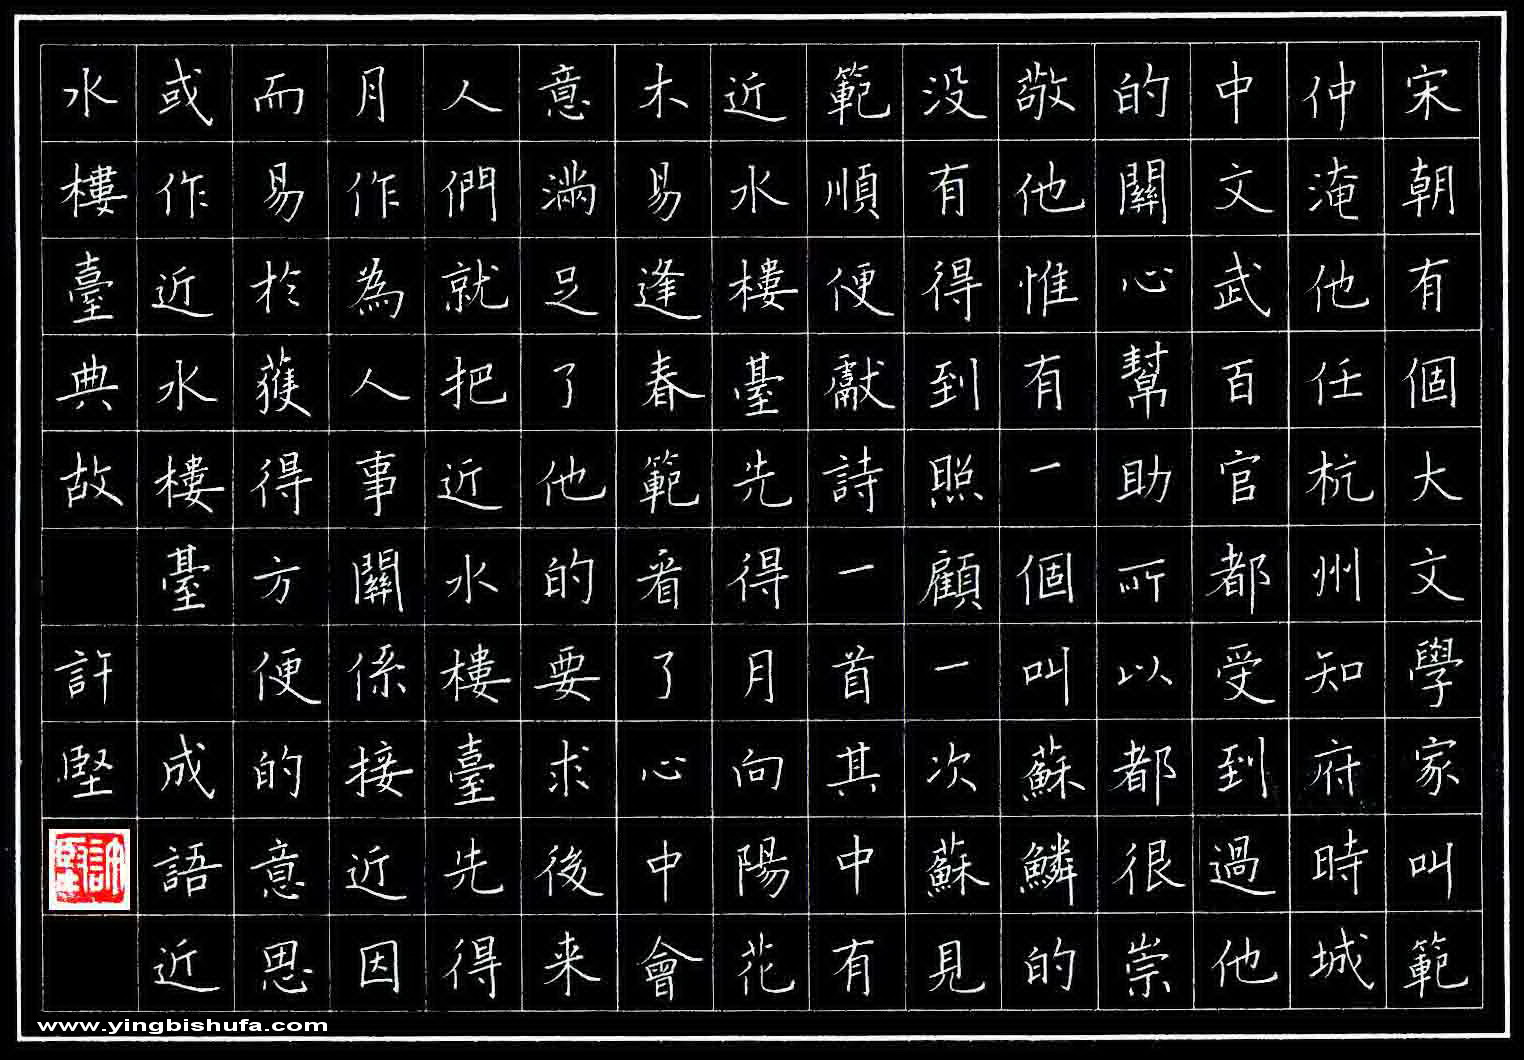 宋朝有個大文學家叫範
仲淹他任杭州知府時城
中文武百官都受到過他
的關心幫助所以都很崇
敬他惟有一個叫蘇鱗的
没有得到照顧一次蘇見
範順便獻詩一首其中有
近水樓臺先得月向陽花
木易逢春範看了心中會
意滿足了他的要求後来
人們就把近水樓臺先得
月作為人事關係接近因
而易於獲得方便的意思
或作近水樓臺 成語近
水樓臺典故 許堅
許堅
www.yingbishufa.com